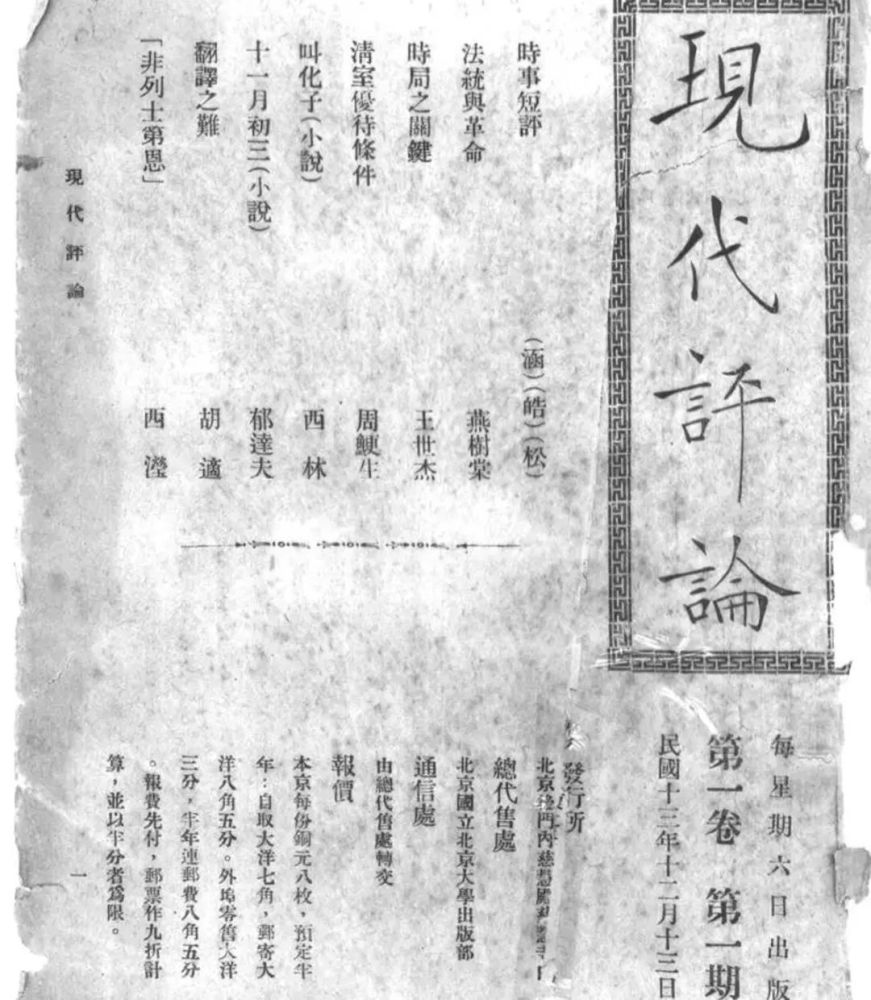 現代評論
每星期六日出版
第一卷 第一期
民國十三年十二月十三日
時事短評 (涵)(皓)(松)
法統與革命 燕樹棠
時局之關鍵 王世杰
清室優待條件 周鯁生
叫化子(小說) 西林
十一月初三(小說) 郁達夫
翻譯之難 胡適
「非列士第恩」 西瀅
發行所
北京 門內慈慧殿
總代售處
北京國立北京大學出版部
通信處
由總代售處轉交
報價
本京每份銅元八枚，預定半
年：自取大洋七角，郵寄大
洋八角五分。外埠零售大洋
三分，半年連郵費八角五分
。報費先付，郵票作九折計
算，並以半分者為限。
現代評論
一